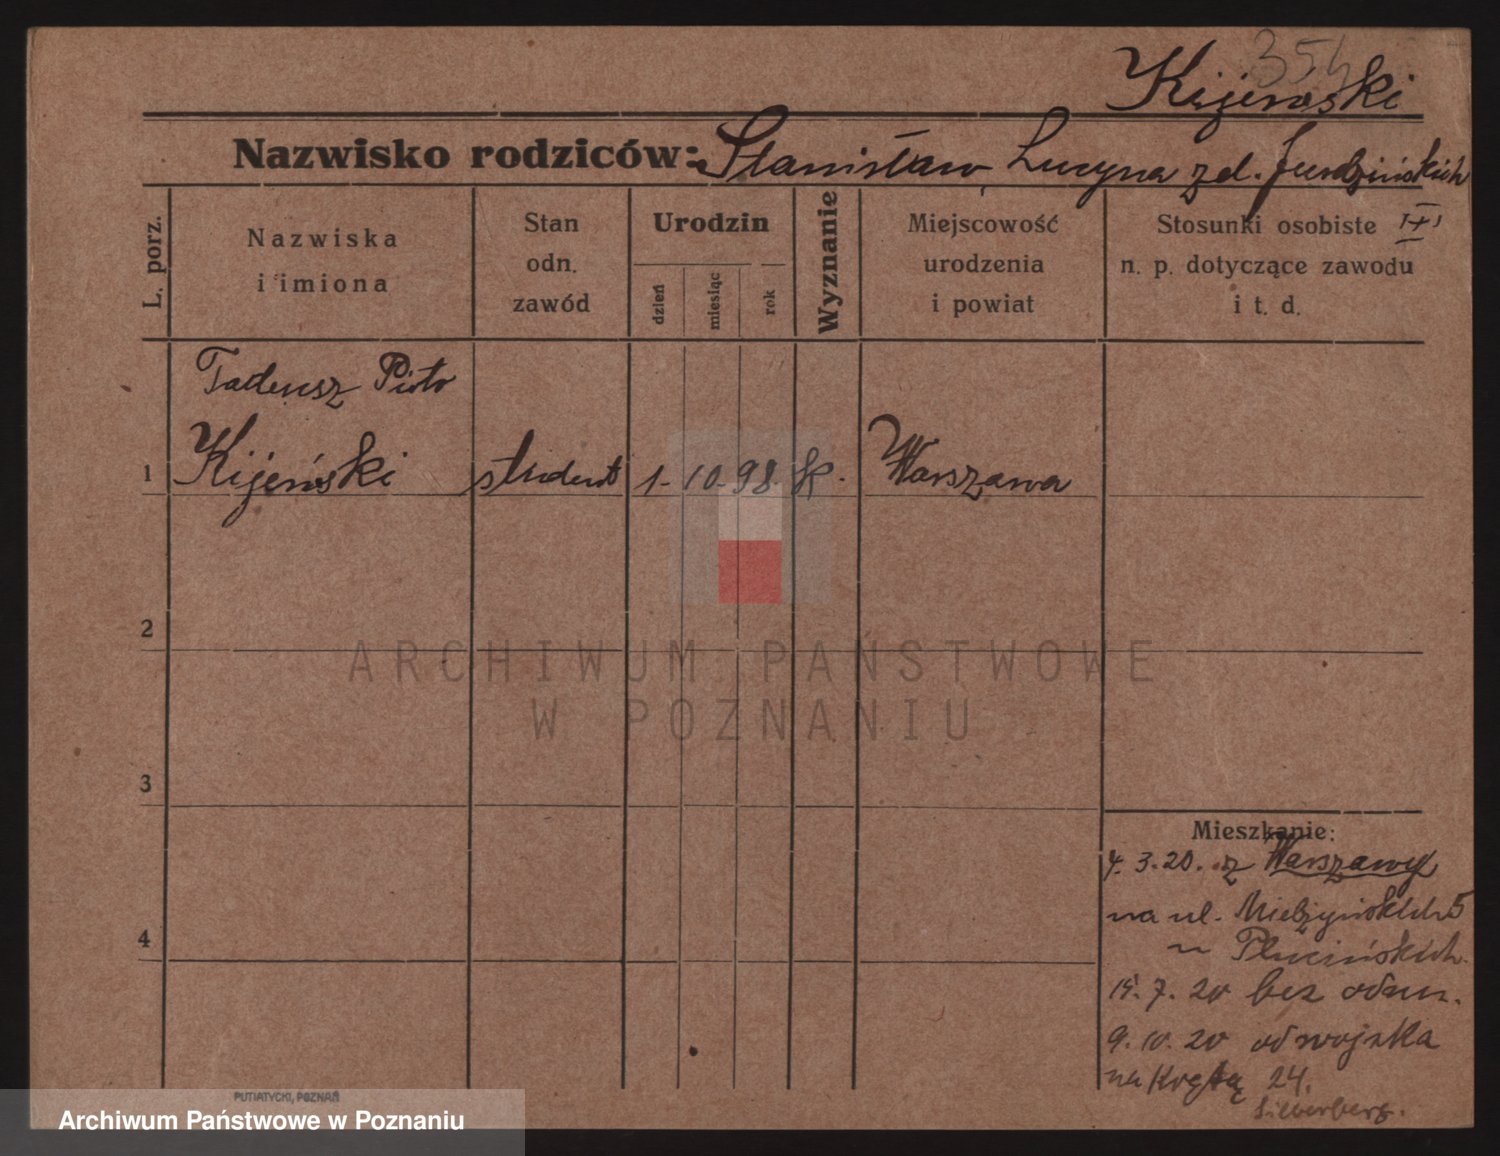 354
Kijeński
Nazwisko rodziców: Stanisław Lucyna z d. Jurdzińskich
L. porz.
Nazwiska
i imiona
Stan
odn.
zawód
Urodzin
dzień
miesiąc
rok
Wyznanie
Miejscowość
urodzenia
i powiat
Stosunki osobiste
n. p. dotyczące zawodu
i t. d.
Tadeusz Piotr
1 Kijeński student 1. 10. 98. k. Warszawa
2
3
4
ARCHIWUM PAŃSTWOWE
W POZNANIU
Mieszkanie:
4. 3. 20. z Warszawy
na ul. Mielżyńskich 5
u Plucińskich.
15. 7. 20 bez odm.
9. 10. 20 od wojska
na Krętą 24.
Silberberg.
PUTIATYCKI, POZNAŃ
Archiwum Państwowe w Poznaniu